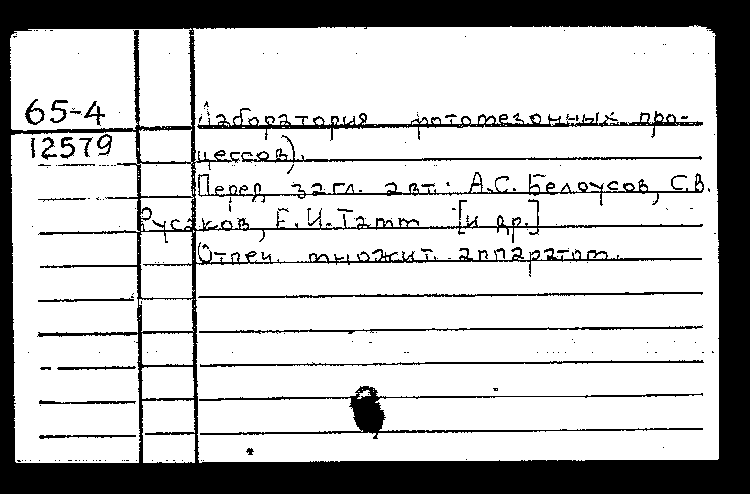 65-4
12579
Лаборатория фотомезонных про-
цессов).
Перед загл. авт.: А.С. Белоусов, С.В.
Русаков, Е.И. Тамм [и др.]
Отпеч. множит. аппаратом.